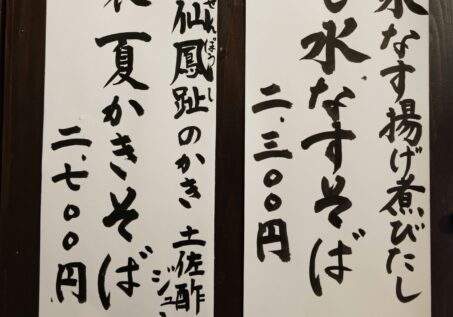 水なす揚げ煮びたし
水なすそば
二、三〇〇円
せんぽうし
仙鳳趾のかき 土佐酢
ジュ
夏かきそば
二、七〇〇円